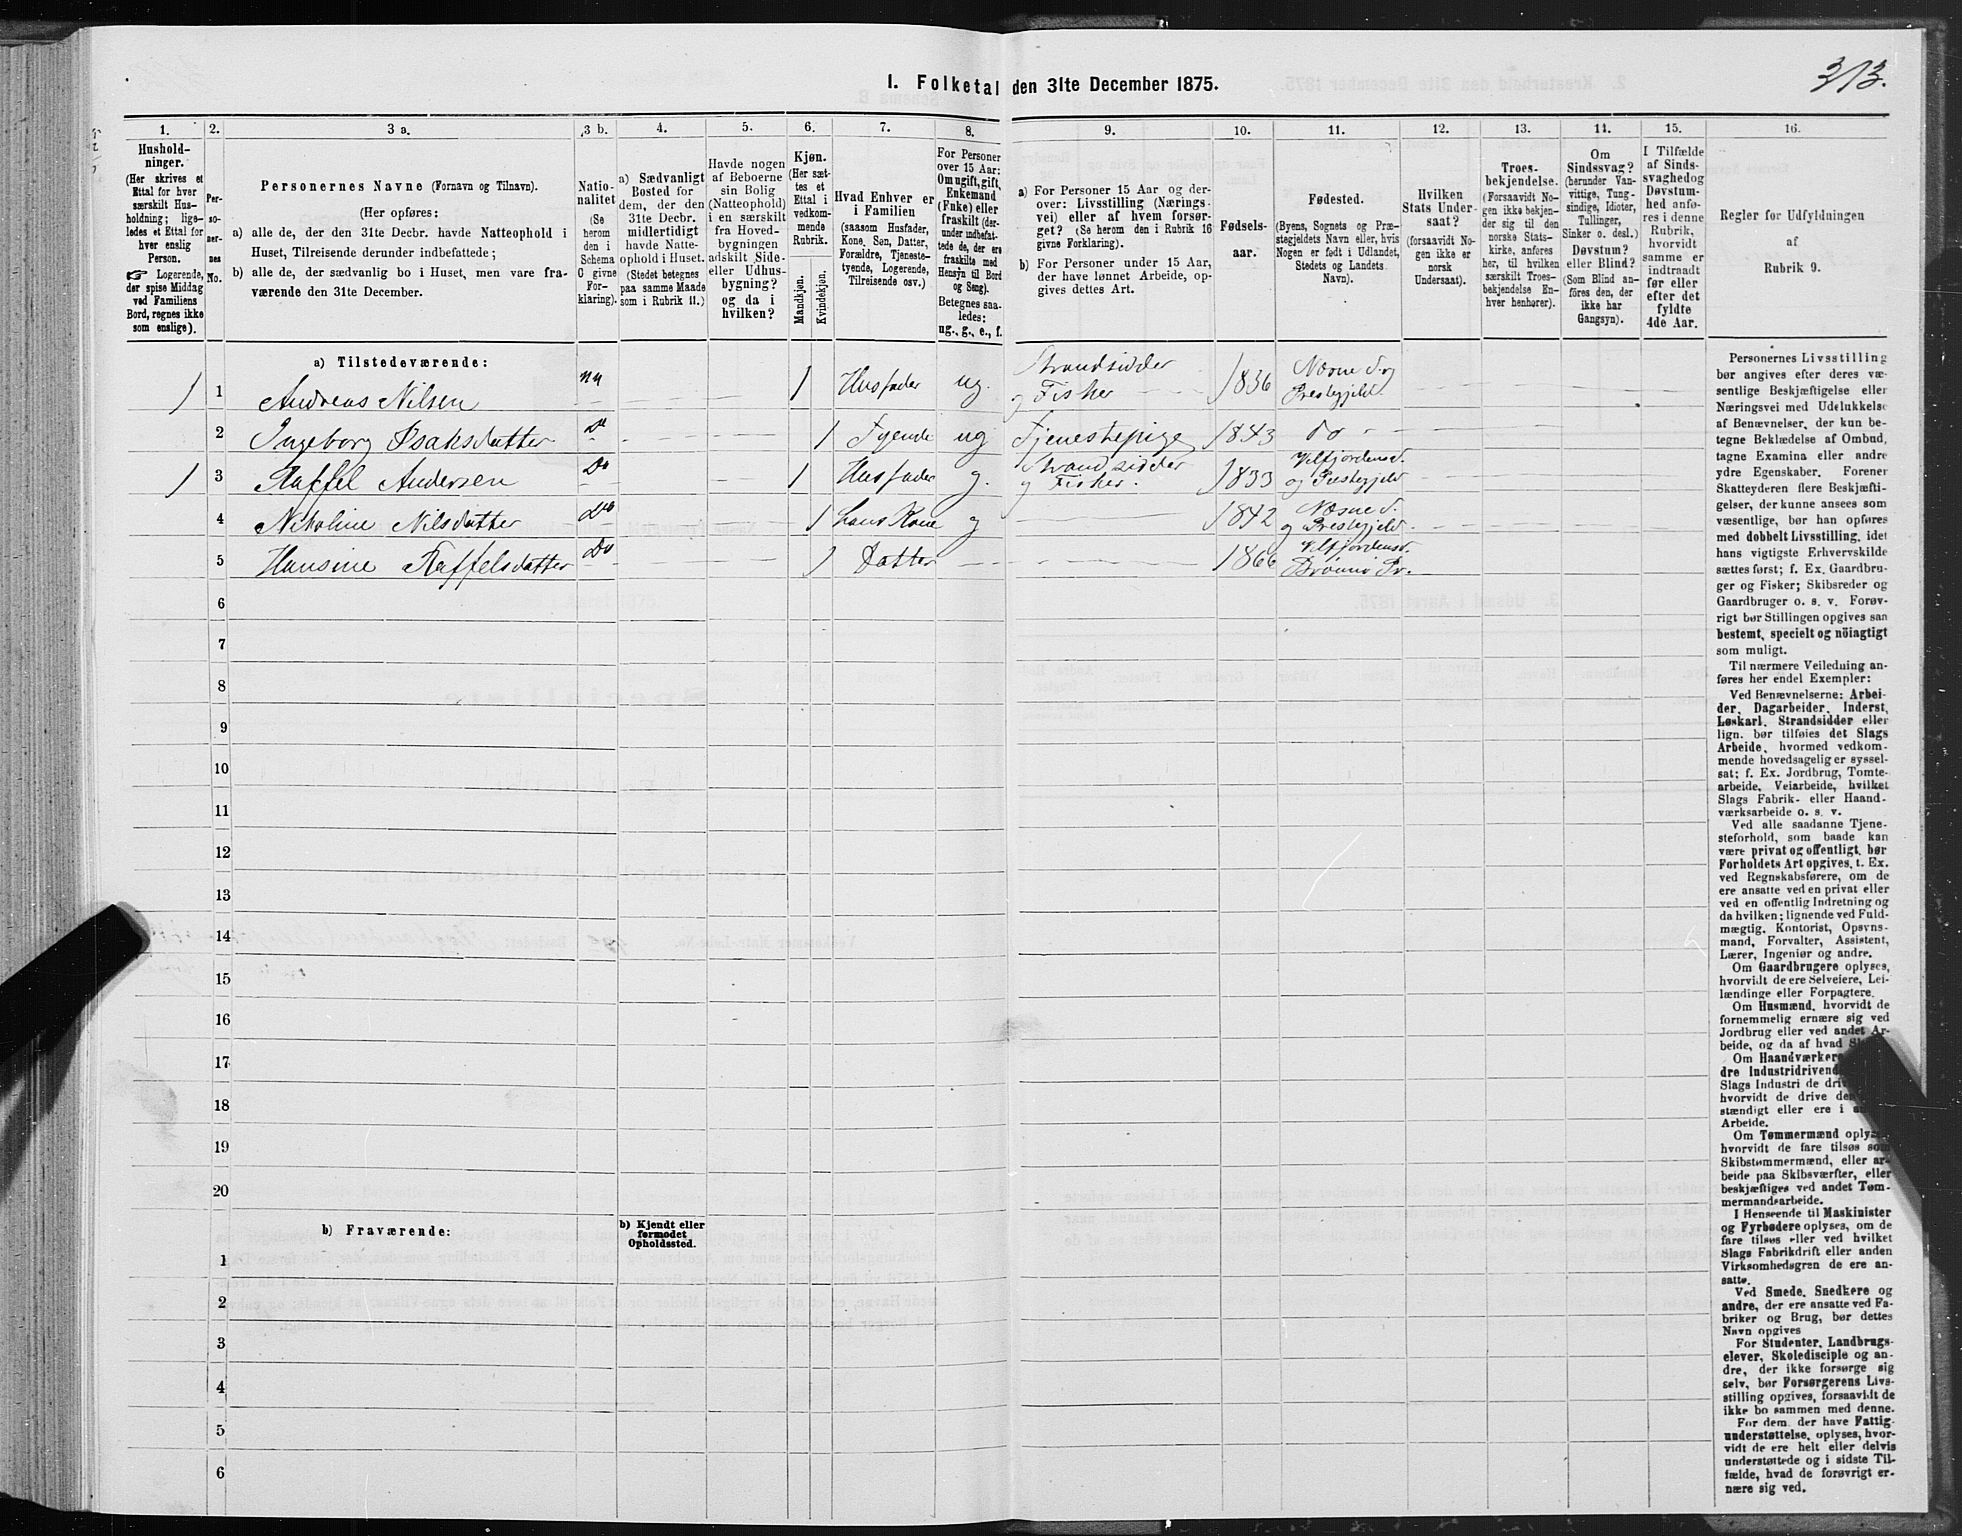 313.
I. Folketal den 31te December 1875.
1. 2. 3 a. 3 b. 4. 5. 6. 7. 8. 9. 10. 11. 12. 13. 14. 15. 16.
Hushold-
ninger.
(Her skrives et
Ettal for hver
særskilt Hus-
holdning; lige-
ledes et Ettal for
hver enslig
Person.
☞ Logerende,
der spise Middag
ved Familiens
Bord, regnes ikke
som enslige).
Per-
so-
ner-
nes
No.
Personernes Navne (Fornavn og Tilnavn).
(Her opføres:
a) alle de, der den 31te Decbr. havde Natteophold i
Huset, Tilreisende derunder indbefattede;
b) alle de, der sædvanlig bo i Huset, men vare fra-
værende den 31te December.
Natio-
nalitet
(Se
herom
den i
Schema
C givne
For-
klaring).
a) Sædvanligt
Bosted for
dem, der den
31te Decbr.
midlertidigt
havde Natte-
ophold i Huset.
(Stedet betegnes
paa samme Maade
som i Rubrik 11.)
Havde nogen
af Beboerne
sin Bolig
(Natteophold)
i en særskilt
fra Hoved-
bygningen
adskilt Side-
eller Udhus-
bygning?
og da i
hvilken?
Kjøn.
(Her sæt-
tes et
Ettal i
vedkom-
mende
Rubrik.
Mandkjøn.
Kvindekjøn.
Hvad Enhver er
i Familien
(saasom Husfader,
Kone, Søn, Datter,
Forældre, Tjeneste-
tyende, Logerende,
Tilreisende osv.)
For Personer
over 15 Aar:
Om ugift, gift,
Enkemand
(Enke) eller
fraskilt (der-
under indbefat-
tede de, der ere
fraskilte med
Hensyn til Bord
og Seng).
Betegnes saa-
ledes:
ug., g., e., f.
a) For Personer 15 Aar og der-
over: Livsstilling (Nærings-
vei) eller af hvem forsør-
get? (Se herom i Rubrik 16
givne Forklaring).
b) For Personer under 15 Aar,
der have lønnet Arbeide, op-
gives dettes Art.
Fødsels-
aar.
Fødested.
(Byens, Sognets og Præ-
stegjeldets Navn eller, hvis
Nogen er født i Udlandet,
Stedets og Landets
Navn).
Hvilken
Stats Under-
saat?
(forsaavidt No-
gen ikke er
norsk
Undersaat).
Troes-
bekjendelse.
(Forsaavidt No-
gen ikke bekjen-
der sig til den
norske Stats-
kirke, anføres
her, til hvilken
særskilt Troes-
bekjendelse En-
hver henhører).
Om
Sindssvag?
(herunder Van-
vittige, Tung-
sindige, Idioter,
Tullinger,
Sinker o. desl.)
Døvstum?
eller Blind?
(Som Blind an-
føres den, der
ikke har
Gangsyn).
I Tilfælde
af Sinds-
svaghed og
Døvstum-
hed anfø-
res i denne
Rubrik,
hvorvidt
samme er
indtraadt
før eller
efter det
fyldte
4de Aar.
Regler for Udfyldningen
af
Rubrik 9.
a) Tilstedeværende:
1 1 Andreas Nilsen 1 Husfader ug. Strandsidder og Fisker 1836 Næsne S. og Prestegjeld
2 Ingeborg Isaksdatter Do 1 Tyende ug Tjenestepige 1843 do
1 3 Raffel Andersen Do 1 Husfader g. Strandsidder og Fisker. 1833 Velfjordens S. og Prestegjeld
4 Nikoline Nilsdatter Do 1 hans Kone g 1842 Næsne S. og Prestegjeld
5 Hansine Raffelsdatter Do 1 Datter 1866 Velfjordens S. Brønnø Pr.
6
7
8
9
10
11
12
13
14
15
16
17
18
19
20
b) Fraværende:
b) Kjendt eller
formodet
Opholdssted.
1
2
3
4
5
6
Personernes Livsstilling
bør angives efter deres væ-
sentlige Beskjæftigelse eller
Næringsvei med Udelukkelse
af Benævnelser, der kun be-
tegne Beklædelse af Ombud,
tagne Examina eller andre
ydre Egenskaber. Forener
Skatteyderen flere Beskjæfti-
gelser, der kunne ansees som
væsentlige, bør han opføres
med dobbelt Livsstilling, idet
hans vigtigste Erhvervskilde
sættes først; f. Ex. Gaardbru-
ger og Fisker; Skibsreder og
Gaardbruger o. s. v. Forøv-
rigt bør Stillingen opgives saa
bestemt, specielt og nöiagtigt
som muligt.
Til nærmere Veiledning an-
føres her endel Exempler:
Ved Benævnelserne: Arbei-
der, Dagarbeider, Inderst,
Løskarl, Strandsidder eller
lign. bør tilføies det Slags
Arbeide, hvormed vedkom-
mende hovedsagelig er syssel-
sat; f. Ex. Jordbrug, Tomte-
arbeide, Veiarbeide, hvilket
Slags Fabrik- eller Haand-
værksarbeide o. s. v.
Ved alle saadanne Tjene-
steforhold, som baade kan
være privat og offentligt, bør
Forholdets Art opgives, t. Ex.
ved Regnskabsførere, om de
ere ansatte ved en privat eller
ved en offentlig Indretning og
da hvilken; lignende ved Fuld-
mægtig, Kontorist, Opsyns-
mand, Forvalter, Assistent,
Lærer, Ingeniør og andre.
Om Gaardbrugere oplyses,
hvorvidt de ere Selveiere, Lei-
lændinge eller Forpagtere.
Om Husmænd, hvorvidt de
fornemmelig ernære sig ved
Jordbrug eller ved andet Ar-
beide, og da af hvad
Om Haandværkere
dre Industridrivend
Slags Industri de
hvorvidt de drive
stændigt eller ere i
Arbeide.
Om Tømmermænd oplyses,
hvorvidt de fare tilsøs som
Skibstømmermænd, eller ar-
beide paa Skibsværfter, eller
beskjæftiges ved andet Tøm-
mermandsarbeide.
I Henseende til Maskinister
og Fyrbødere oplyses, om de
fare tilsøs eller ved hvilket
Slags Fabrikdrift eller anden
Virksomhedsgren de ere an-
satte.
Ved Smede, Snedkere og
andre, der ere ansatte ved Fa-
briker og Brug, bør dettes
Navn opgives
For Studenter, Landbrugs-
elever, Skoledisciple og an-
dre, der ikke forsørge sig
selv, bør Forsørgerens Livs-
stilling opgives, forsaavidt de
ikke bo sammen med denne.
For dem, der have Fattig-
understøttelse, oplyses, hvor-
vidt de ere helt eller delvis
understøttede og i sidste Til-
fælde, hvad de forøvrigt er-
nære sig ved.